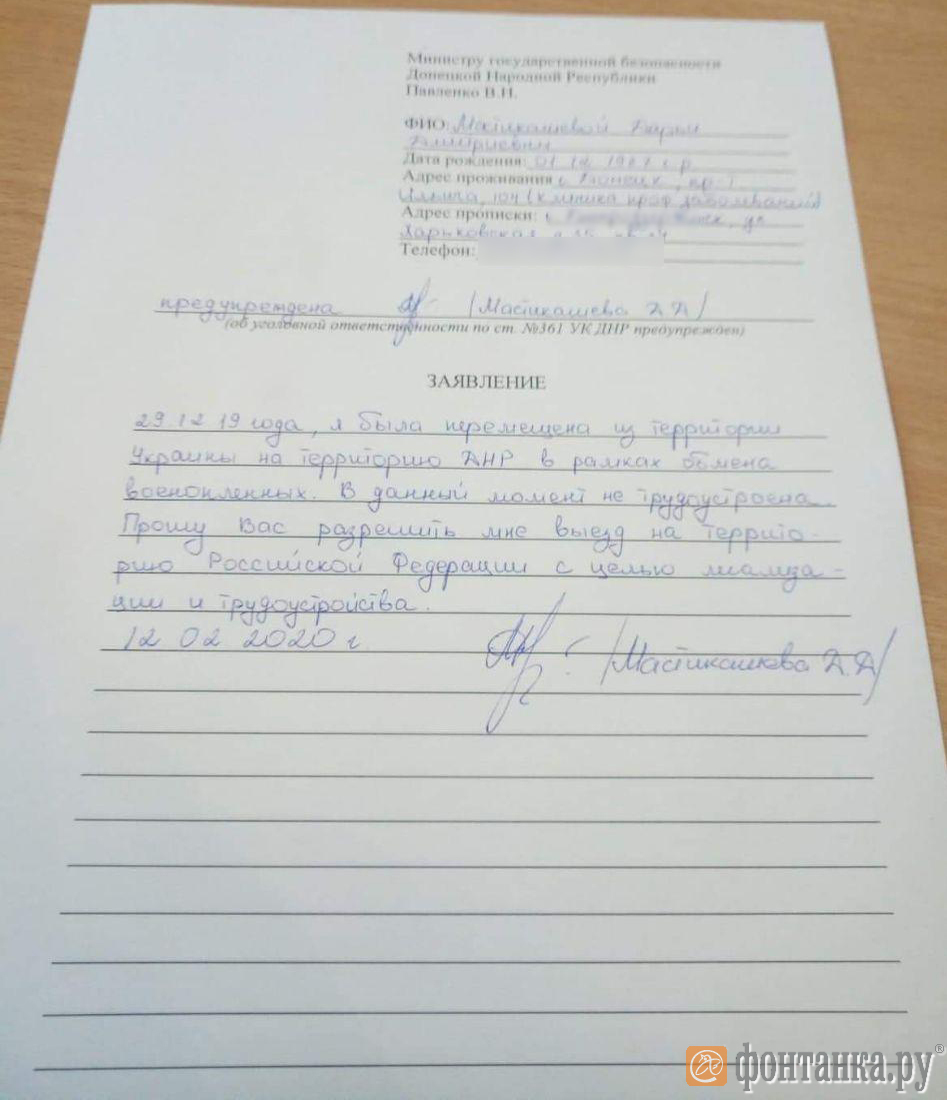 Министру государственной безопасности
Донецкой Народной Республики
Павленко В.Н.
ФИО: Мастикашевой Дарьи
Дмитриевны
Дата рождения: 01 12 1987 г.р.
Адрес проживания г. Донецк, пр-т
Ильича, 104 (клиника проф заболеваний)
Адрес прописки: г. ул
Харьковская
Телефон:
предупреждена /Мастикашева Д.Д/
(об уголовной ответственности по ст. №361 УК ДНР предупрежден)
ЗАЯВЛЕНИЕ
29.12 19 года, я была перемещена из территории
Украины на территорию ДНР в рамках обмена
военопленных. В данный момент не трудоустроена.
Прошу Вас разрешить мне выезд на террито-
рию Российской Федерации с целью
ции и трудоустройства.
12 02 2020 г.
/Мастикашева Д.Д/
фонтанка.ру®